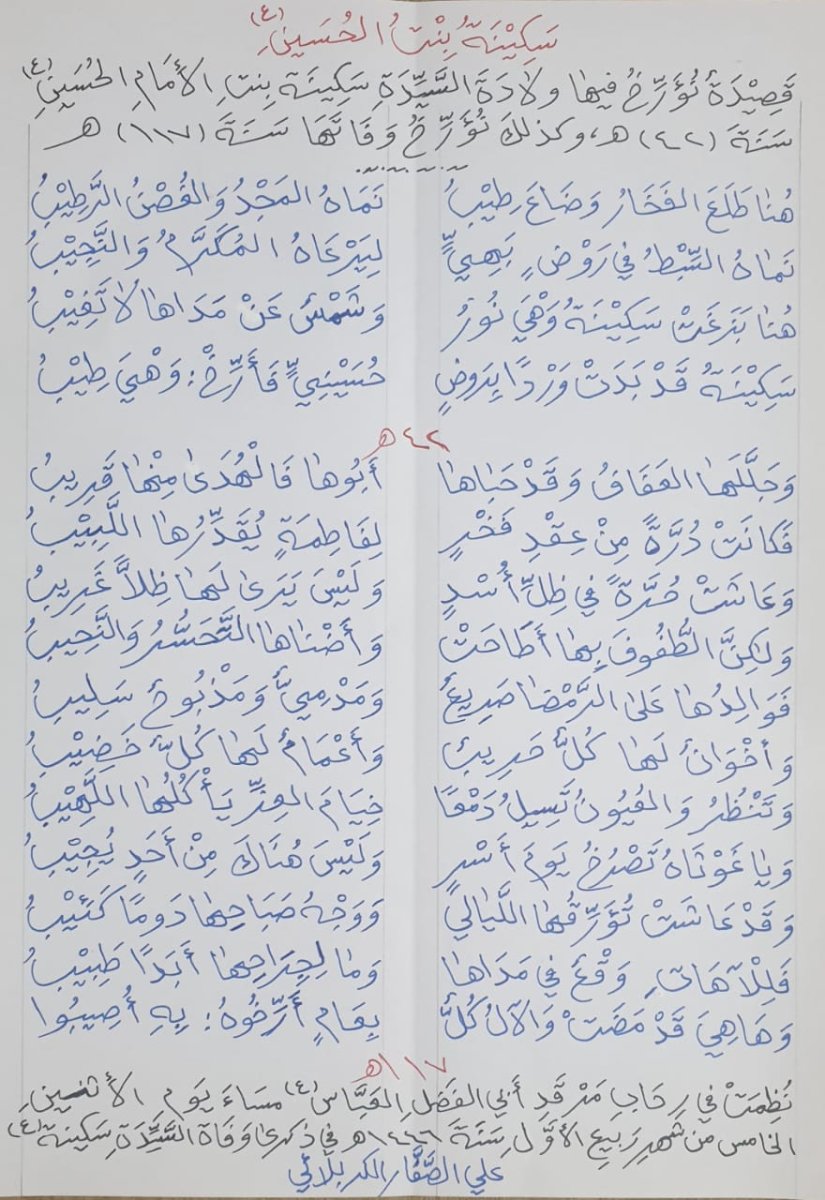 سَكِيْنَةُ بِنْتُ الحُسَيْنِ (ع)
قَصِيْدَةٌ نُؤَرِّخُ فيها ولادَةَ السَّيِّدَةِ سَكِينَةَ بِنتِ الأمَامِ الحُسَينِ (ع)
سَنَةَ (٤٢) هـ، وكذلكَ نُؤَرِّخُ وَفَاتَهَا سَنَةَ (١١٧) هـ
هُنا طَلَعَ الفَخَارُ وَضَاعَ طِيْبُ نَمَاهُ المَجْدُ وَالغُصْنُ الرَّطِيْبُ
نَمَاهُ السِّبْطُ في رَوْضٍ بَهِيٍّ لِيَرْعَاهُ المُكَرَّمُ وَالنَّجِيْبُ
هُنا بَزَغَتْ سَكِيْنَةُ وَهْيَ نُورُ وَشَمْسٌ عَنْ مَدَاها لا تَغِيْبُ
سَكِيْنَةُ قَدْ بَدَتْ وَرْدًا بِرَوضٍ حُسَيْنِيٍّ فَأَرِّخْ: وَهْيَ طِيْبُ
٤٢هـ
وَجَلَّلَها العَفَافُ وَقَدْ حَبَاها أَبُوها فَالْهُدَى مِنْها قَرِيبُ
فَكانَتْ دُرَّةً مِنْ عِقْدِ فَخْرٍ لِفَاطِمَةٍ يُقَدِّرُها اللَّبِيْبُ
وَعَاشَتْ حُرَّةً في ظِلِّ أُسْدٍ وَلَيْسَ يَرَى لَها ظِلاًّ غَرِيبُ
وَلكِنَّ الطُّفُوفَ بِها أَطَاحَتْ وَأَضْنَاها التَّحَسُّرُ وَالنَّحِيبُ
فَوَالِدُها عَلى الرَّمْضَا صَرِيعٌ وَمَدْمِيٌّ وَمَذْبُوحٌ سَلِيبُ
وَأخْوَانٌ لَها كُلٌّ حَرِيبٌ وَأَعْمَامٌ لَها كُلٌّ خَضِيْبُ
وَتَنْظُرُ وَالعُيُونُ تَسِيلُ دَمْعًا خِيَامَ العِزِّ يَأْكُلُها اللَّهِيْبُ
وَيا غَوْثَاهُ تَصْرُخُ يَومَ أَسْرٍ وَلَيْسَ هُنَاكَ مِنْ أَحَدٍ يُجِيْبُ
وَقَدْ عَاشَتْ تُؤَرِّقُها اللَّيالي وَوَجْهُ صَبَاحِها دَومًا كَئِيْبُ
فَلِلْآهَاتِ وَقْعٌ في مَدَاها وَما لِجِرَاحِها أَبَدًا طَبِيْبُ
وَهَا هِيَ قَدْ مَضَتْ وَالآلُ كُلٌّ بِعَامٍ أَرِّخُوهُ: بِهِ أُصِيبُوا
١١٧هـ
نُظِمَتْ في رِحَابِ مَرْقَدِ أَبي الفَضْلِ العَبَّاسِ (ع) مسَاءَ يَومِ الأثنينِ
الخامس من شهرِ رَبيعِ الأوَّلِ سَنَةَ ١٤٤٦هـ في ذكرى وَفَاة السَّيِّدَةِ سَكِينَةَ (ع)
علي الصَّفَّار الكربلائي